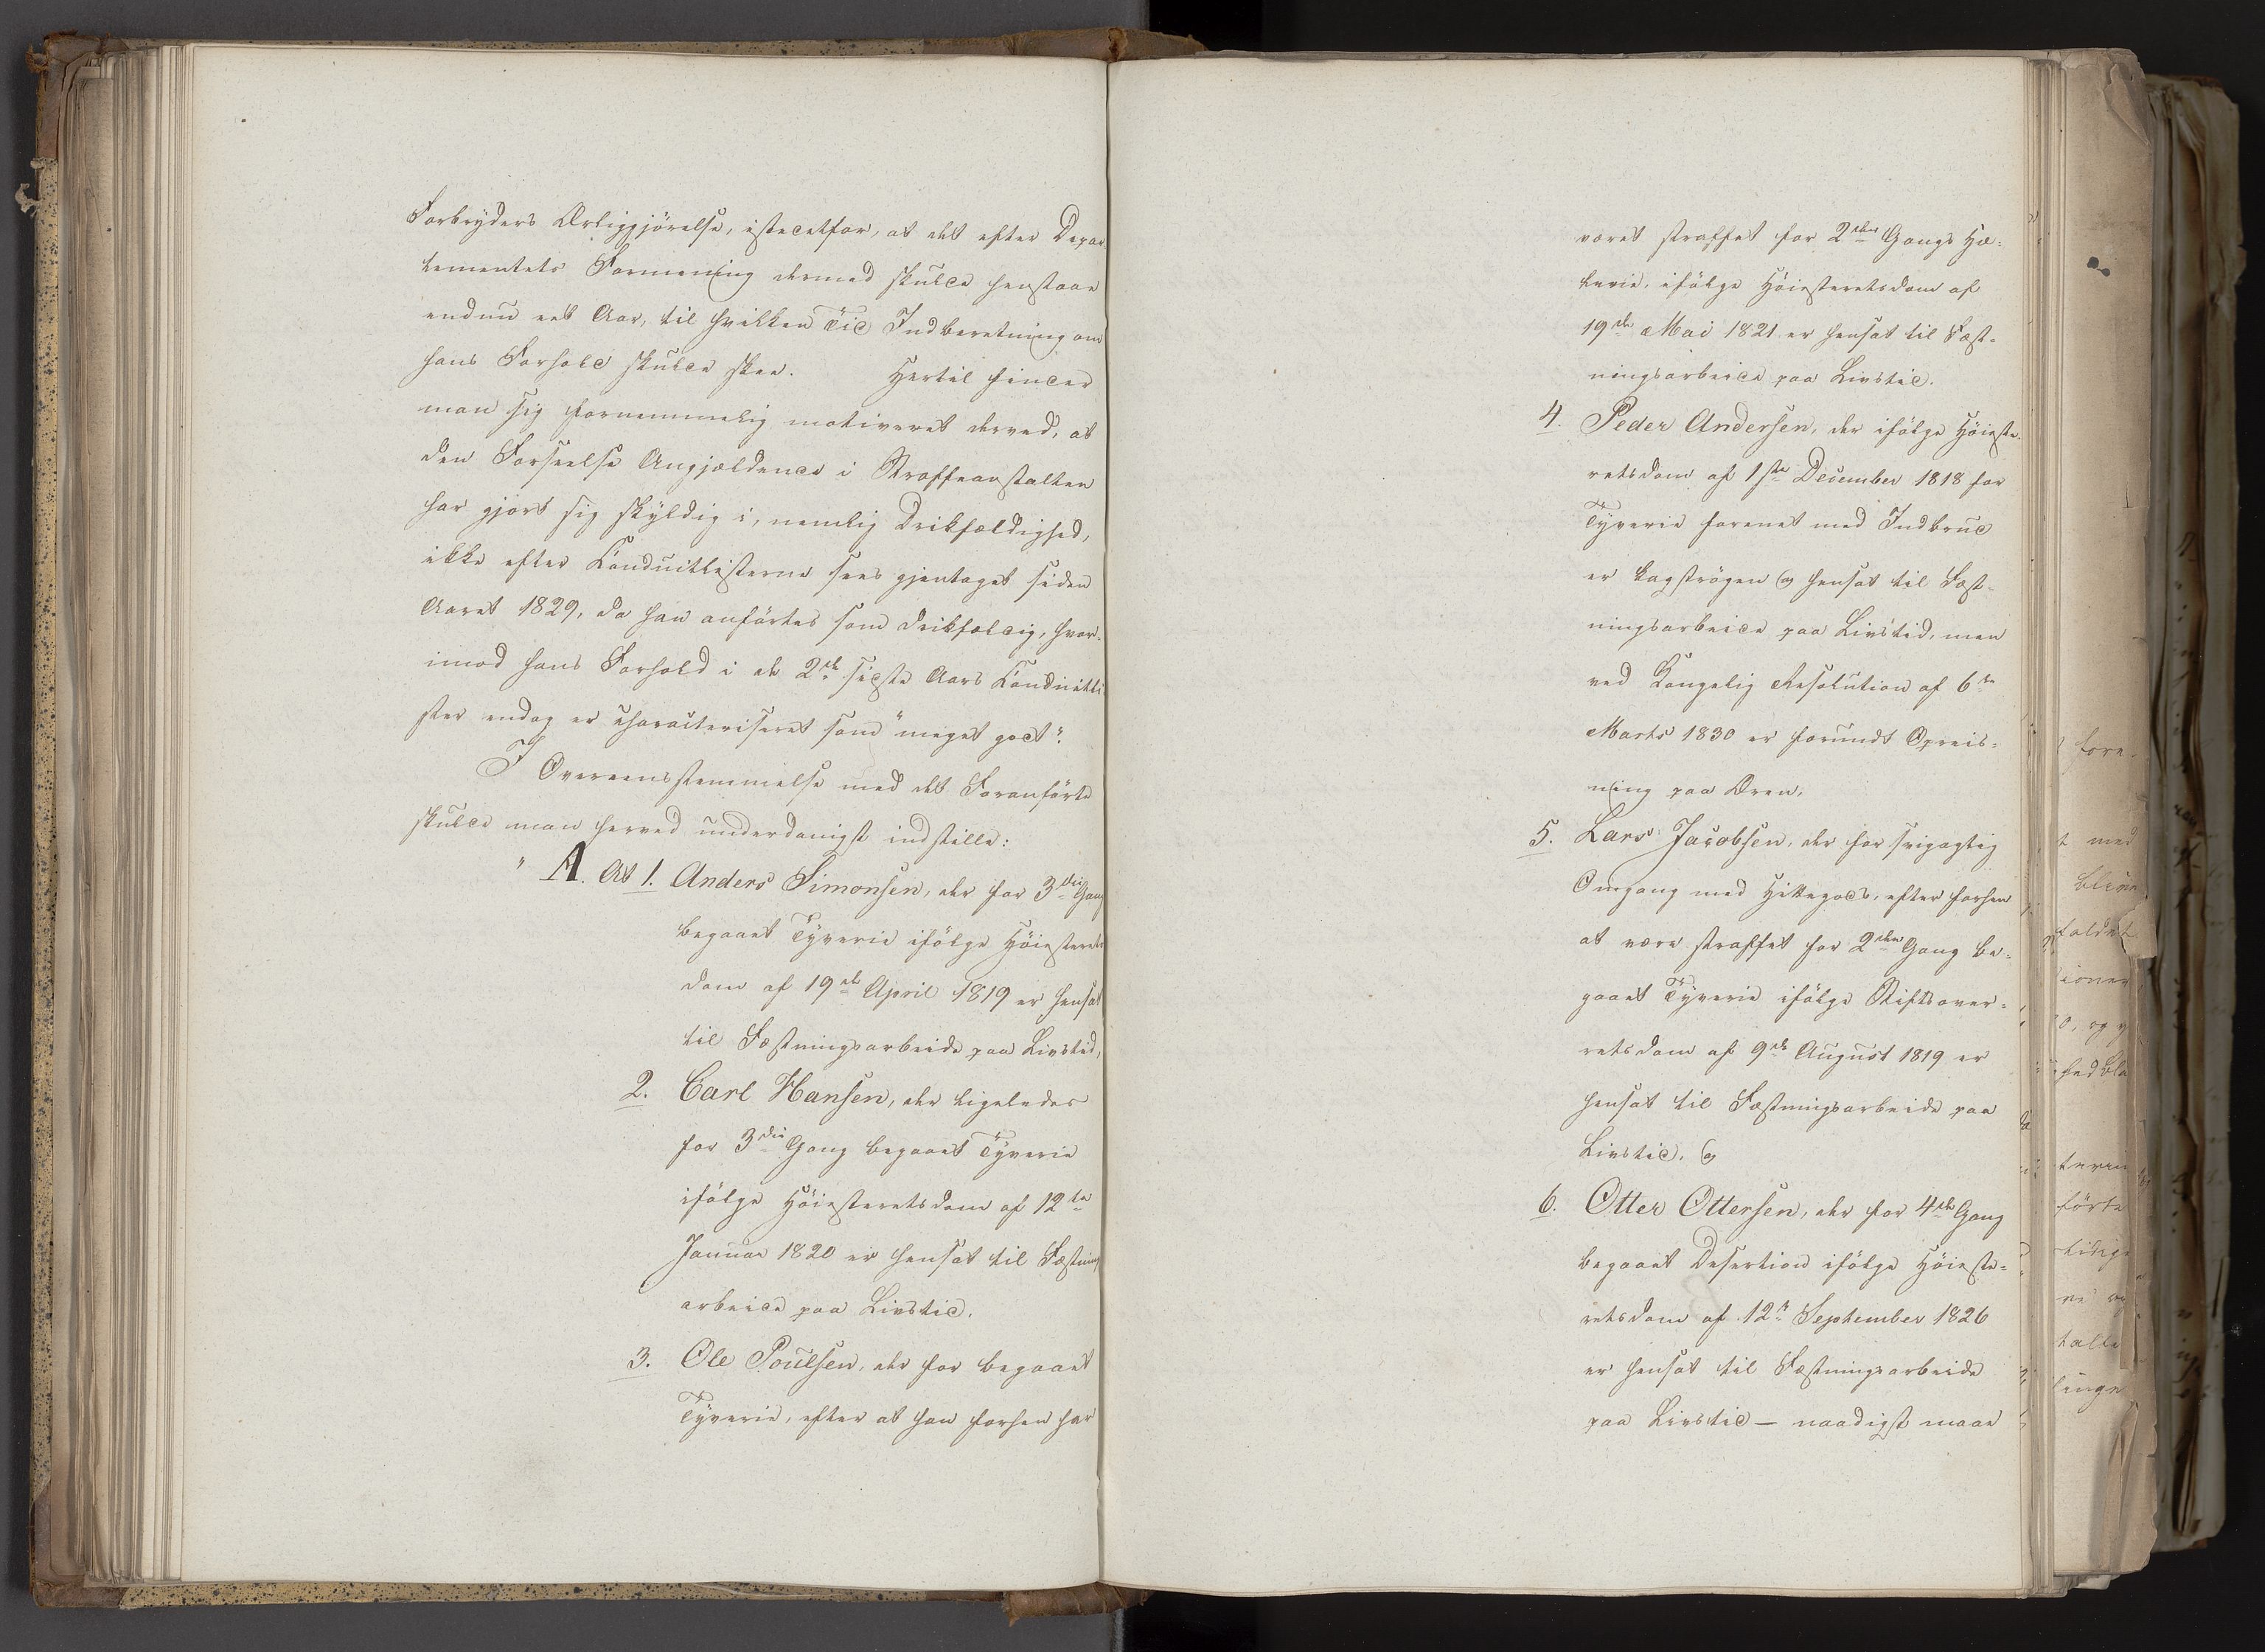 Forbryders Ærliggjörelse, istedetfor, at det efter Depar-
tementets Formening dermed skulde henstaae
endnu eet Aar, til hvilken Tid Indberetning om
hans Forhold skulde skee. Hertil finder
man sig fornemmelig motiveret derved, at
den Forseelse Angjældende i Straffeanstalten
har gjort sig skyldig i, nemlig Drikfældighed,
ikke efter Conduitlisterne sees gjentaget siden
Aaret 1829, da han anförtes som drikfældig, hvor-
imod hans Forhold i de 2de sidste Aars Conduitli-
ster endog er charakteriseret som "meget godt".
I Overeensstemmelse med det Foranförte
skulde man herved underdanigst indstille:
" A. At 1. Anders Simonsen, der for 3die Gang
begaaet Tyverie ifölge Höiesterets
dom af 19de April 1819 er hensat
til Fæstningsarbeide paa Livstid,
2. Carl Hansen, der ligeledes
for 3die Gang begaaet Tyverie
ifölge Höiesteretsdom af 12te
Januar 1820 er hensat til Fæstnings
arbeide paa Livstid.
3. Ole Poulsen, der for begaaet
Tyverie, efter at han forhen har
været straffet for 2den Gangs Hæ-
lerie, ifölge Höiesteretsdom af
19de Mai 1821 er hensat til Fæst-
ningsarbeide paa Livstid.
4. Peder Andersen, der ifölge Höieste-
retsdom af 1ste December 1818 for
Tyverie forenet med Indbrud
er kagströgen og hensat til Fæst-
ningsarbeide paa Livstid, men
ved Kongelig Resolution af 6te
Marts 1830 er forundt Opreis-
ning paa Æren,
5. Lars Jacobsen, der for svigagtig
Omgang med Hittegods, efter forhen
at være straffet for 2den Gang be-
gaaet Tyverie ifölge Stiftsover-
retsdom af 9de August 1819 er
hensat til Fæstningsarbeide paa
Livstid, og
6. Otter Ottersen, der for 4de Gang
begaaet Desertion ifölge Höieste-
retsdom af 12te September 1826
er hensat til Fæstningsarbeide
paa Livstid — naadigst maae